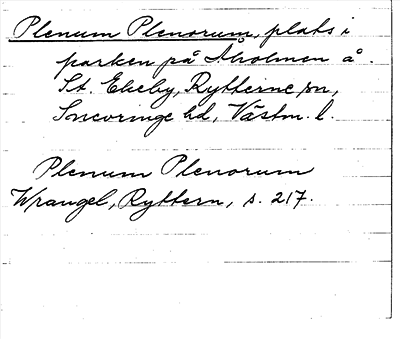 Plenum Plenorum, plats i
parken på Åholmen å.
St. Ekeby, Rytterne sn,
Snevringe hd, Västm. l.
Plenum Plenorum
Wrangel, Ryttern, s. 217.